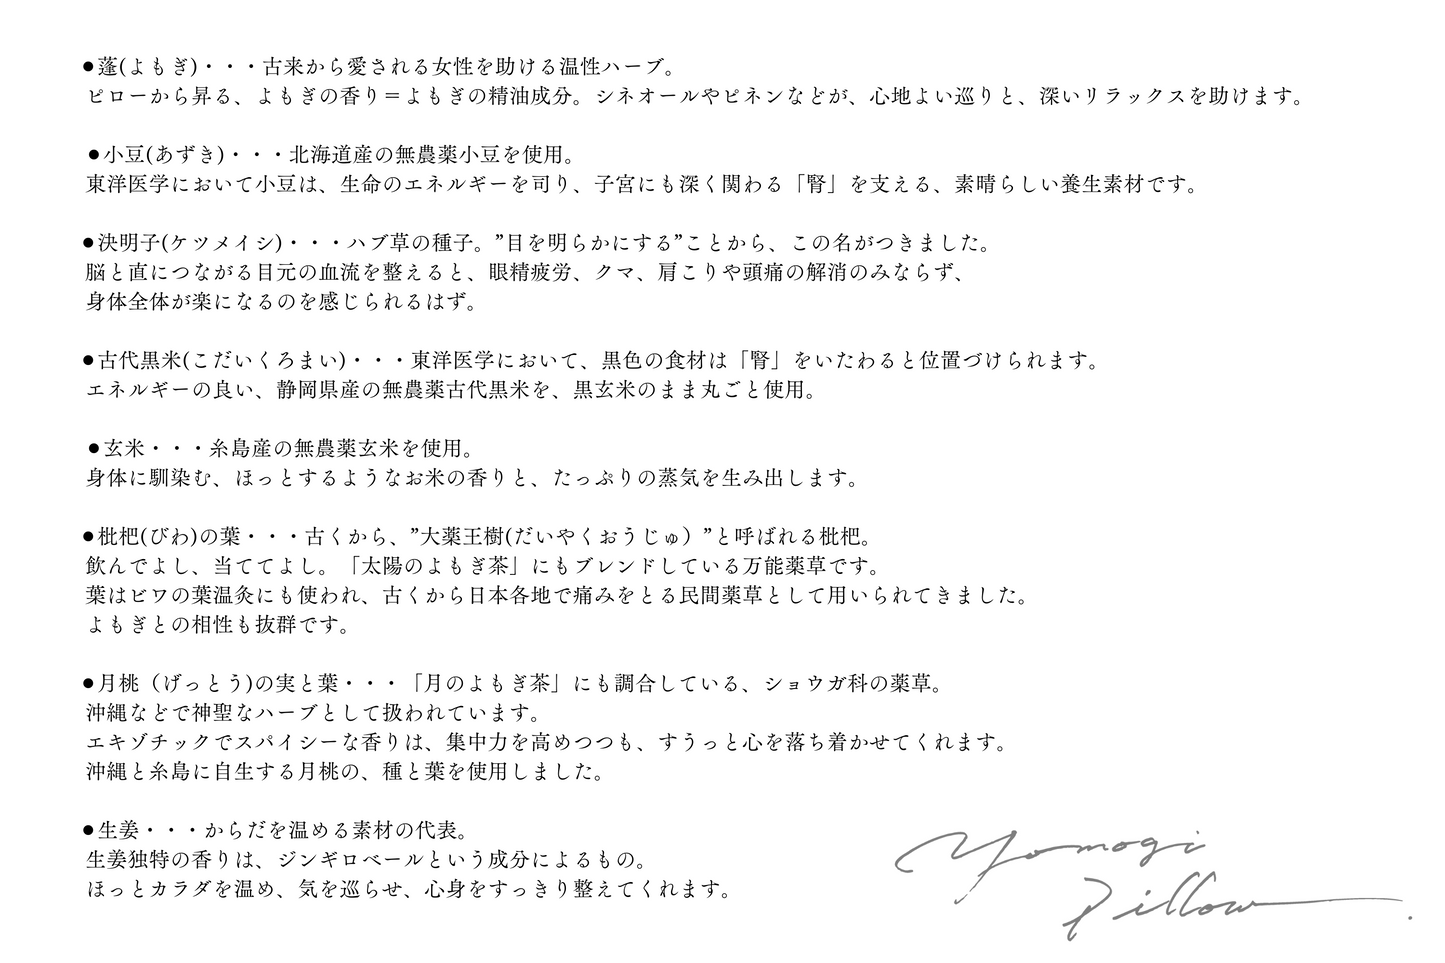 ●蓬(よもぎ)・・・古来から愛される女性を助ける温性ハーブ。
ピローから昇る、よもぎの香り＝よもぎの精油成分。シネオールやピネンなどが、心地よい巡りと、深いリラックスを助けます。
●小豆(あずき)・・・北海道産の無農薬小豆を使用。
東洋医学において小豆は、生命のエネルギーを司り、子宮にも深く関わる「腎」を支える、素晴らしい養生素材です。
●決明子(ケツメイシ)・・・ハブ草の種子。”目を明らかにする”ことから、この名がつきました。
脳と直につながる目元の血流を整えると、眼精疲労、クマ、肩こりや頭痛の解消のみならず、
身体全体が楽になるのを感じられるはず。
●古代黒米(こだいくろまい)・・・東洋医学において、黒色の食材は「腎」をいたわると位置づけられます。
エネルギーの良い、静岡県産の無農薬古代黒米を、黒玄米のまま丸ごと使用。
●玄米・・・糸島産の無農薬玄米を使用。
身体に馴染む、ほっとするようなお米の香りと、たっぷりの蒸気を生み出します。
●枇杷(びわ)の葉・・・古くから、”大薬王樹(だいやくおうじゅ）”と呼ばれる枇杷。
飲んでよし、当ててよし。「太陽のよもぎ茶」にもブレンドしている万能薬草です。
葉はビワの葉温灸にも使われ、古くから日本各地で痛みをとる民間薬草として用いられてきました。
よもぎとの相性も抜群です。
●月桃（げっとう)の実と葉・・・「月のよもぎ茶」にも調合している、ショウガ科の薬草。
沖縄などで神聖なハーブとして扱われています。
エキゾチックでスパイシーな香りは、集中力を高めつつも、すうっと心を落ち着かせてくれます。
沖縄と糸島に自生する月桃の、種と葉を使用しました。
●生姜・・・からだを温める素材の代表。
生姜独特の香りは、ジンギロベールという成分によるもの。
ほっとカラダを温め、気を巡らせ、心身をすっきり整えてくれます。
Yomogi
Pillow.